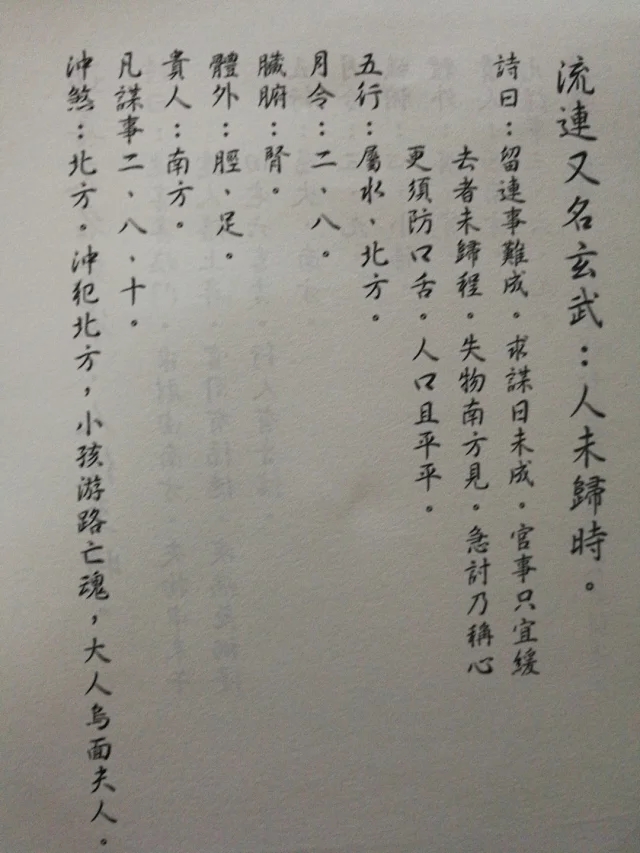 流連又名玄武：人未歸時。
詩曰：留連事難成。求謀日未成。官事只宜緩
去者未歸程。失物南方見。急討乃稱心
更須防口舌。人口且平平。
五行：屬水、北方。
月令：二、八。
臟腑：腎。
體外：脛、足。
貴人：南方。
凡謀事二、八、十。
沖煞：北方。沖犯北方，小孩游路亡魂，大人烏面夫人。